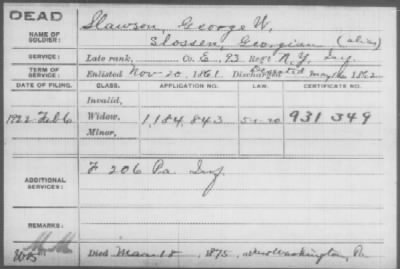 DEAD
NAME OF SOLDIER: Slawson, George W.
Slossen, Georgian (alias)
SERVICE: Late rank, Co. E, 93 Reg't N.Y. Inf.
TERM OF SERVICE: Enlisted Nov 20, 1861. Discharged Deserted May 1862
DATE OF FILING. CLASS. APPLICATION NO. LAW. CERTIFICATE NO.
Invalid,
1922 Feb 6 Widow, 1,184,843 931 349
Minor,
ADDITIONAL SERVICES: F 206 Pa Inf.
REMARKS:
Died Mar 18, 1875, at New Washington, Pa